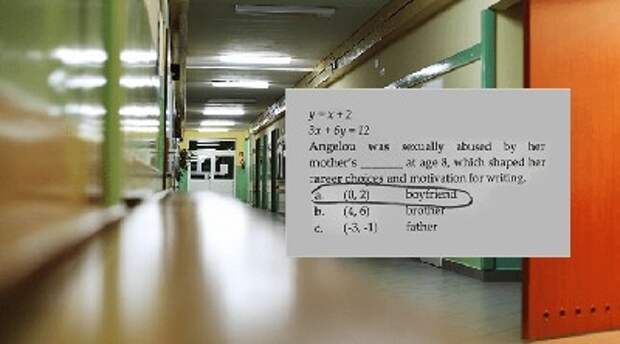 y = x + 2
3x + 6y = 12
Angelou was sexually abused by her
mother's ________ at age 8, which shaped her
career choices and motivation for writing.
a. (0, 2) boyfriend
b. (4, 6) brother
c. (-3, -1) father